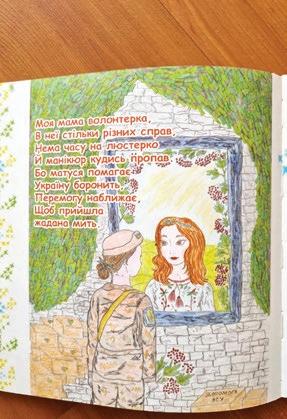 Моя мама волонтерка,
В неї стільки різних справ,
Нема часу на люстерко
Й манікюр кудись пропав.
Бо матуся помагає
Україну боронить,
Перемогу наближає,
Щоб прийшла
жадана мить.
допомога
ЗСУ